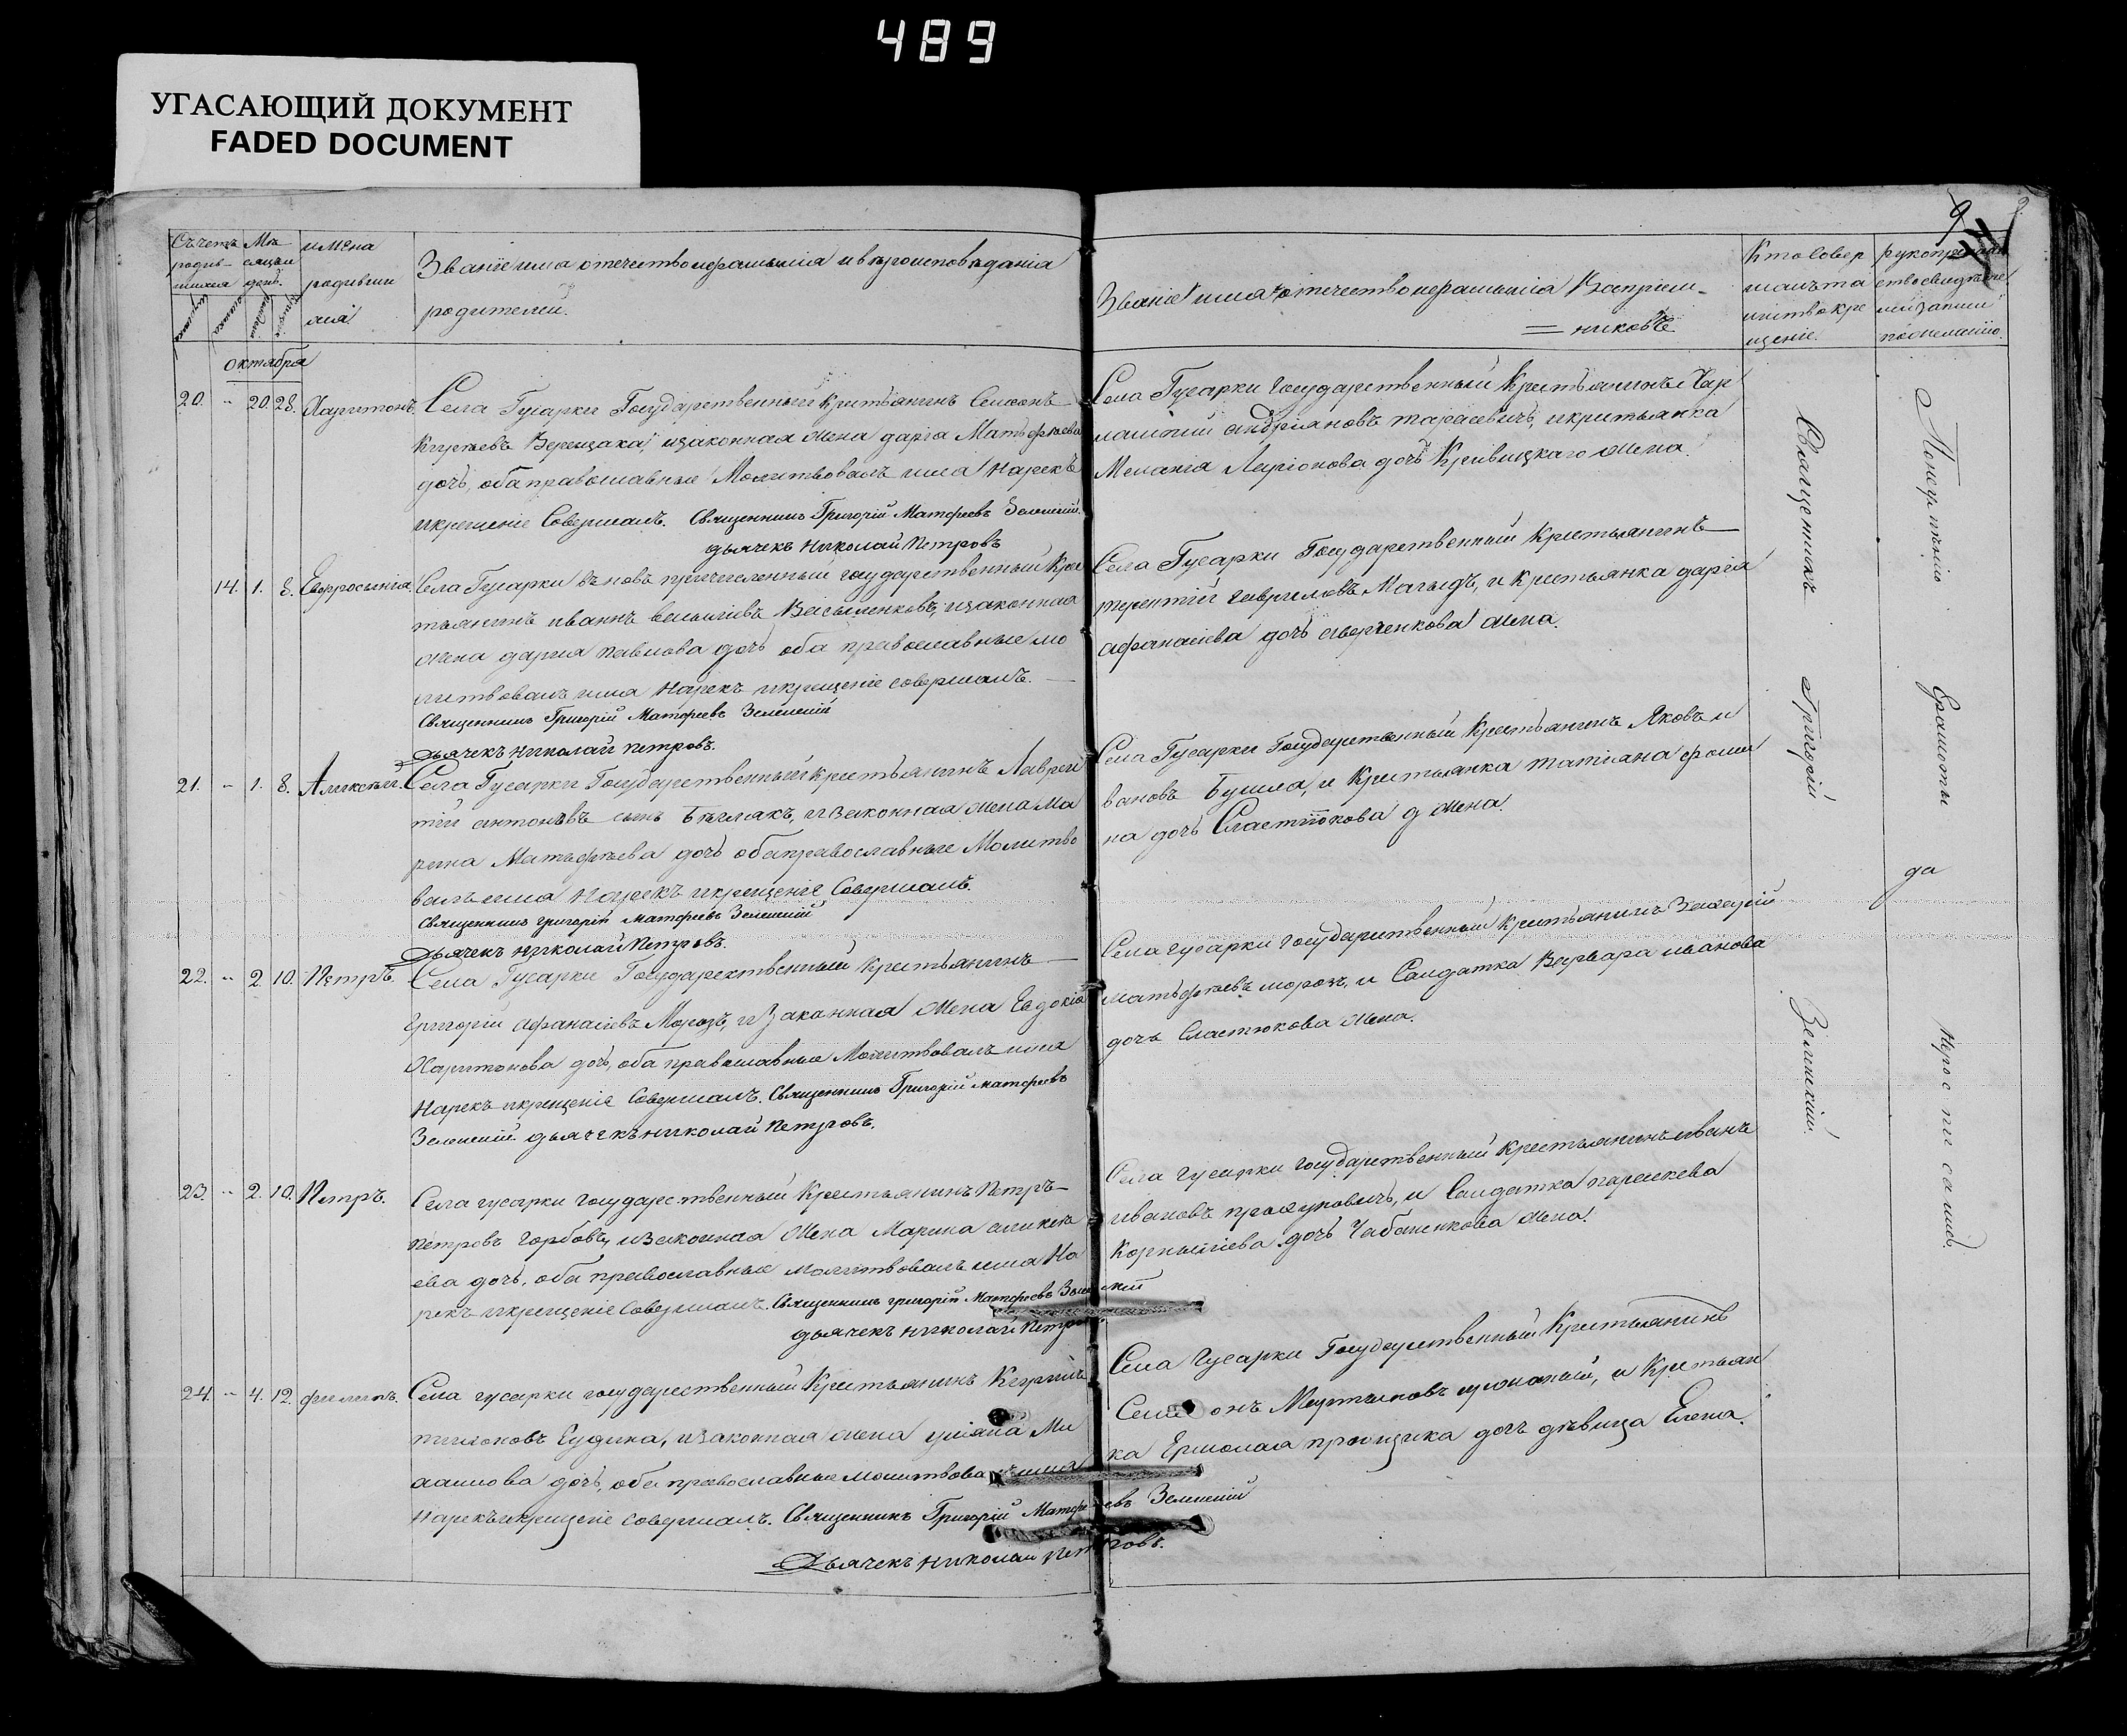 489
УГАСАЮЩИЙ ДОКУМЕНТ
FADED DOCUMENT
9
Счетъ родив-шихся
Мѣ-сяцъ и день.
имена родивши мся
Званіе имя отечество и фамилія и вѣроисповѣданія
родителей.
Званіе имя отечество и фамилія Воспріем-
= никовъ
Кто совер
шалъ та
инство кре
щеніе.
рукоприклад
ство свидѣтеле
записи
по желанію.
октября
20. - 20. 28. Харитонъ. Села Гусарки Государственный крестьянинъ Семіонъ
Верещака, и законная жена дарія Матьфѣева
дочь, оба православные Молитвовалъ имя Нарекъ
и крещеніе Совершалъ. Священникъ Григорій Матфеевъ Зеленскій.
дьячекъ Николай Петровъ
Села Гусарки Государственный Крестьянинъ
андріяновъ тарасевичъ, и кристьянка
Меланія Ларіонова дочь Кривицкаго жена.
14. 1. 8. Евфросинія. Села Гусарки вновь причисленный государственный Крес
тьянинъ иванъ васильіевъ Васильенковъ, и законная
жена дария павлова дочь оба православные мо
литвовалъ имя Нарекъ и крещеніе совершалъ.
Священникъ Григорій Матфеевъ Зеленскій
Дьячекъ Николай Петровъ.
Села Гусарки Государственный Крестьянинъ
терентій гавриловъ и крестьянка дарія
афанасіева дочь аверченкова жена.
21. - 1. 8. Аликсѣй. Села Гусарки Государственный крестьянинъ Лаврен
тій антонѣвъ сынъ Бѣглякъ, и законная жена Ма
рина Матьфѣева дочь оба православные Молитво
валъ имя Нарекъ и крещеніе Совершалъ.
Священникъ григорій матфеевъ Зеленскій
Дьячекъ Николай Петровъ.
Села Гусарки Государственный Крестьянинъ Яковъ и
вановъ Бушла, и Кристьянка татіана фоми
на дочь Сластіюкова жена.
22. - 2. 10. Петръ. Села Гусарки Государственный крестьянинъ
Григорій афанасіевъ Морозъ, и Законная жена Евдокія
Харитонова дочь, оба православные Молитвовалъ имя
Нарекъ и крещеніе Совершалъ. Священникъ Григорій матфеевъ
Зеленскій дьячекъ Николай Петровъ.
Села гусарки государственный крестьянинъ
матьфѣевъ морозъ, и Салдатка Варвара иванова
дочь Сластюкова жена.
23. - 2. 10. Петръ. Села гусарки государственный Крестьянинъ Петръ
Петровъ горбовъ, и законная жена Марина аликсѣ
ева дочь, оба православные молитвовалъ имя На
рекъ и крещеніе Совершалъ. Священникъ григорій Матфеевъ Зеленскій
дьячекъ Николай Петровъ
Села гусарки государственный крестьянинъ иванъ
ивановъ и Салдатка параскева
Корнилиева дочь Чабаненкова жена.
24. - 4. 12. филипъ. Села гусарки государственный Крестьянинъ
Гудина, и законная жена уліяна Ми
хаилова дочь, оба православные молитвовалъ имя
Нарекъ и крещеніе совершалъ. Священникъ Григорій Матфеевъ Зеленскій
Дьячекъ Николай Петровъ.
Села Гусарки Государственный Кристьянинъ
Семионъ и Кристьян
ка Ермолая дочь дѣвица Елена.
Священникъ Григорій Зеленскій.
По неумѣнію Грамоты да не росписались.